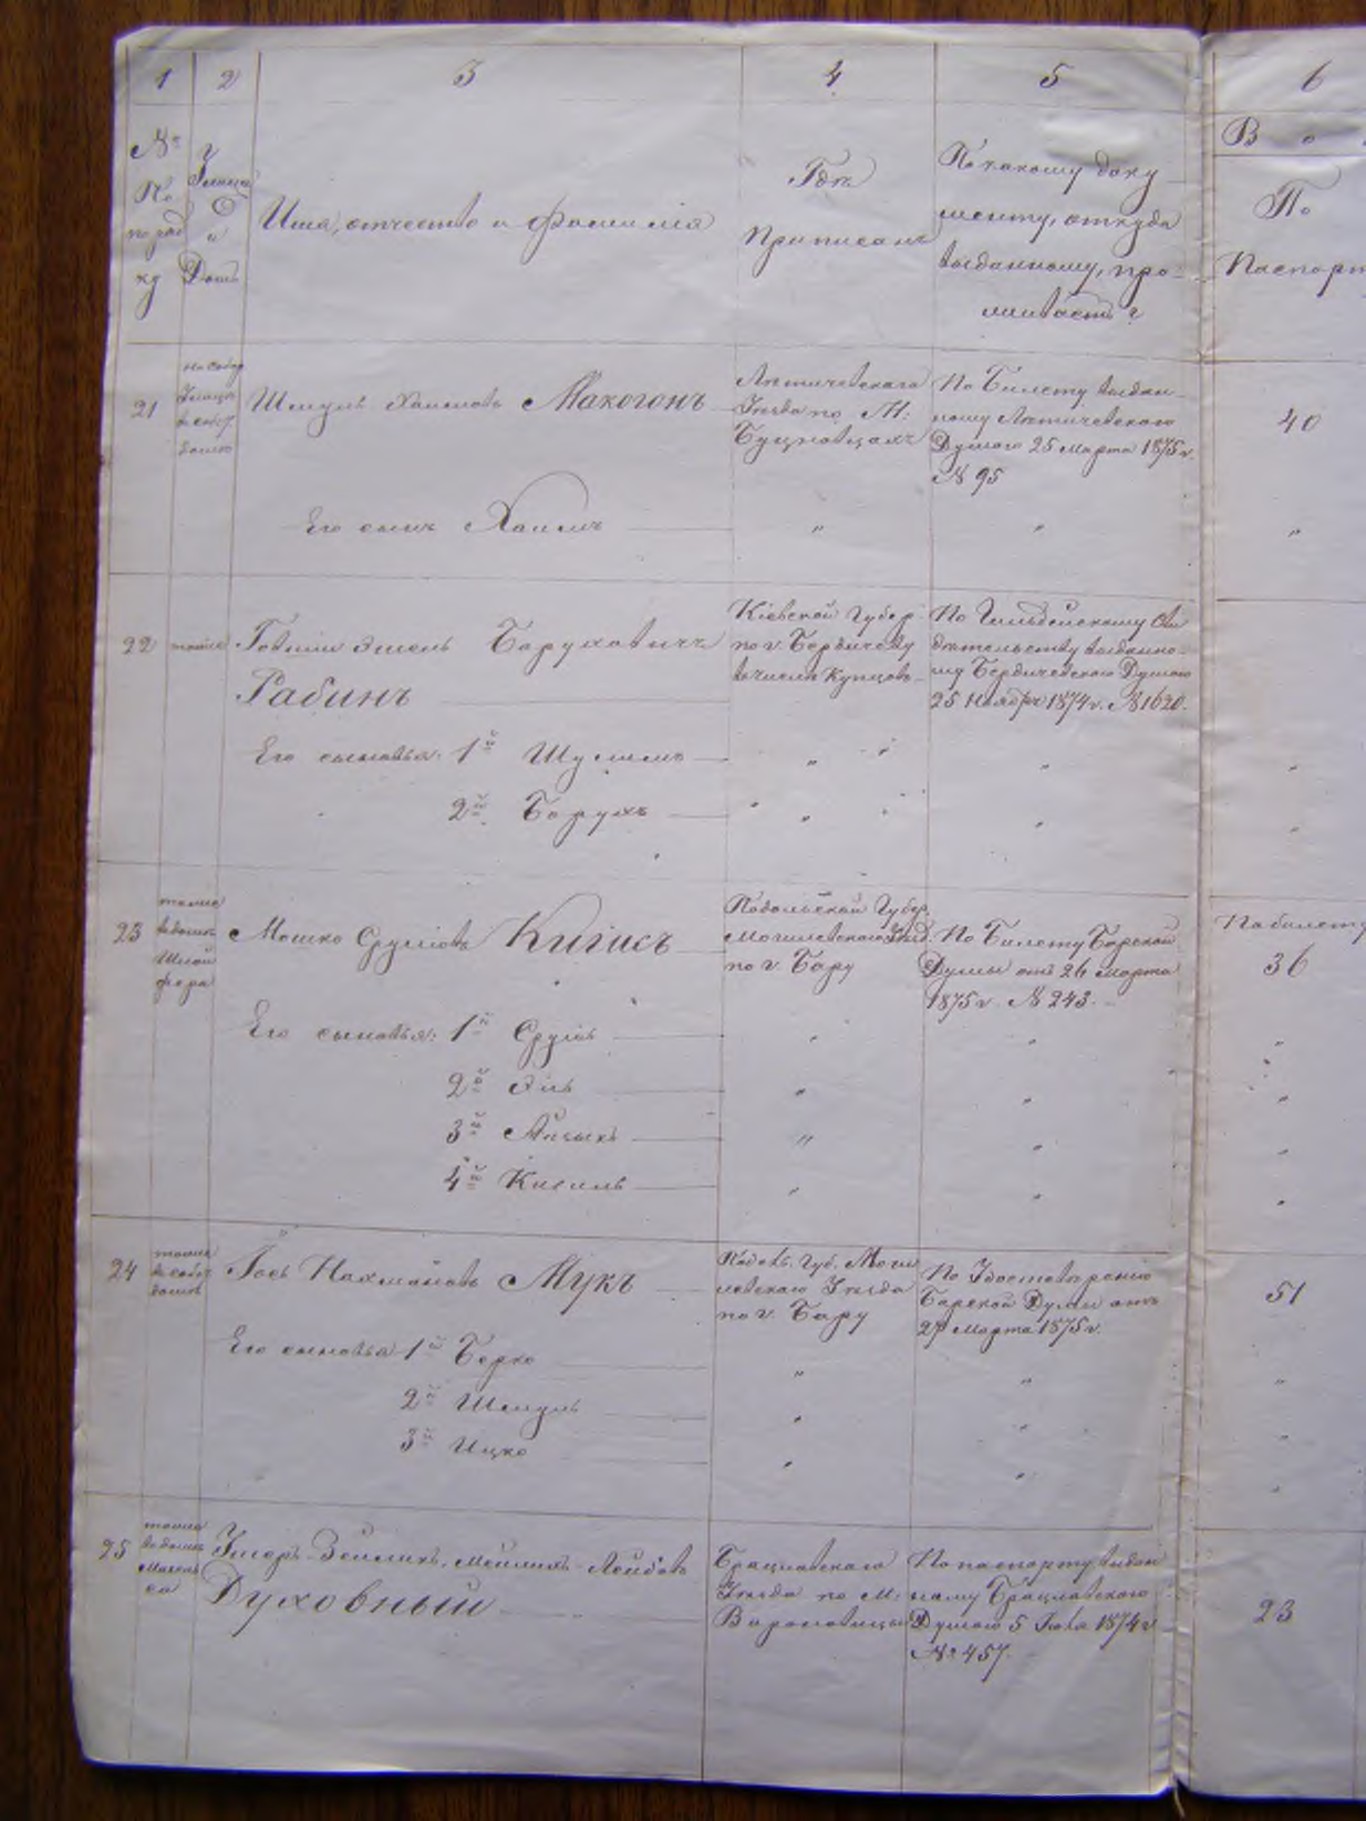 1 2 3 4 5 6
№
По
поряд
ку
Улица
и
Домъ
Имя, отчество и фамилія
Гдѣ
приписанъ
По какому доку
менту, откуда
выданному, про-
живаетъ?
В о
По
Паспорт
21
на собор
Улицѣ
въ собст.
домѣ
Шмуль Хаимовъ Макогонъ
Летичевскаго
Уѣзда по М:
Буцновцахъ
По Билету выдан-
ному Летичевскою
Думою 25 Марта 1875 г.
№ 95
40
Его сынъ Хаимъ " " "
22 тоже
Баруховичъ
Рабинъ
Кіевской Губер.
по г. Бердичеву
въ числѣ Купцовъ
По Гильдейскому Сви
дѣтельству выданно-
му Бердичевскою Думою
25 Ноября 1874 г. № 1620.
Его сыновья: 1й Шулимъ " " "
2й Борухъ " " "
23
тоже
въ домѣ
Мошко Сруліовъ Кигисъ
Подольской Губер.
Могилевскаго Уѣзд.
по г. Бару
По Билету Барской
Думы отъ 26 Марта
1875 г. № 243.
По билету
36
Его сыновья: 1й Сруль " " "
2й Эль " " "
3й Айзыкъ " " "
4й Кисиль " " "
24
тоже
въ собст
домѣ
Іось Нахмановъ Мукъ
Подол. Губ. Моги
левскаго Уѣзда
по г. Бару
По Удостовѣренію
Барской Думы отъ
27 Марта 1875 г.
51
Его сыновья 1й Берко " " "
2й Шмуль " " "
3й Ицко " " "
25
тоже
въ домѣ
Умеръ-Зейликъ-Мейлихъ Лейбовъ
Духовный
Брацлавскаго
Уѣзда по М:
Вороновицы
По паспорту выдан
ному Брацлавскою
Думою 5 1874 г
№ 457.
23